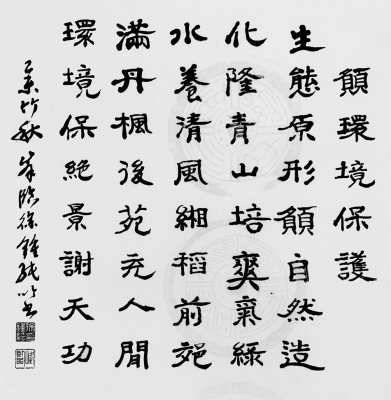 願環境保護
生態原形願自然造
化隆青山培爽氣綠
水養清風緗稻前
滿丹楓後苑充人間
環境保絕景謝天功
竹秋